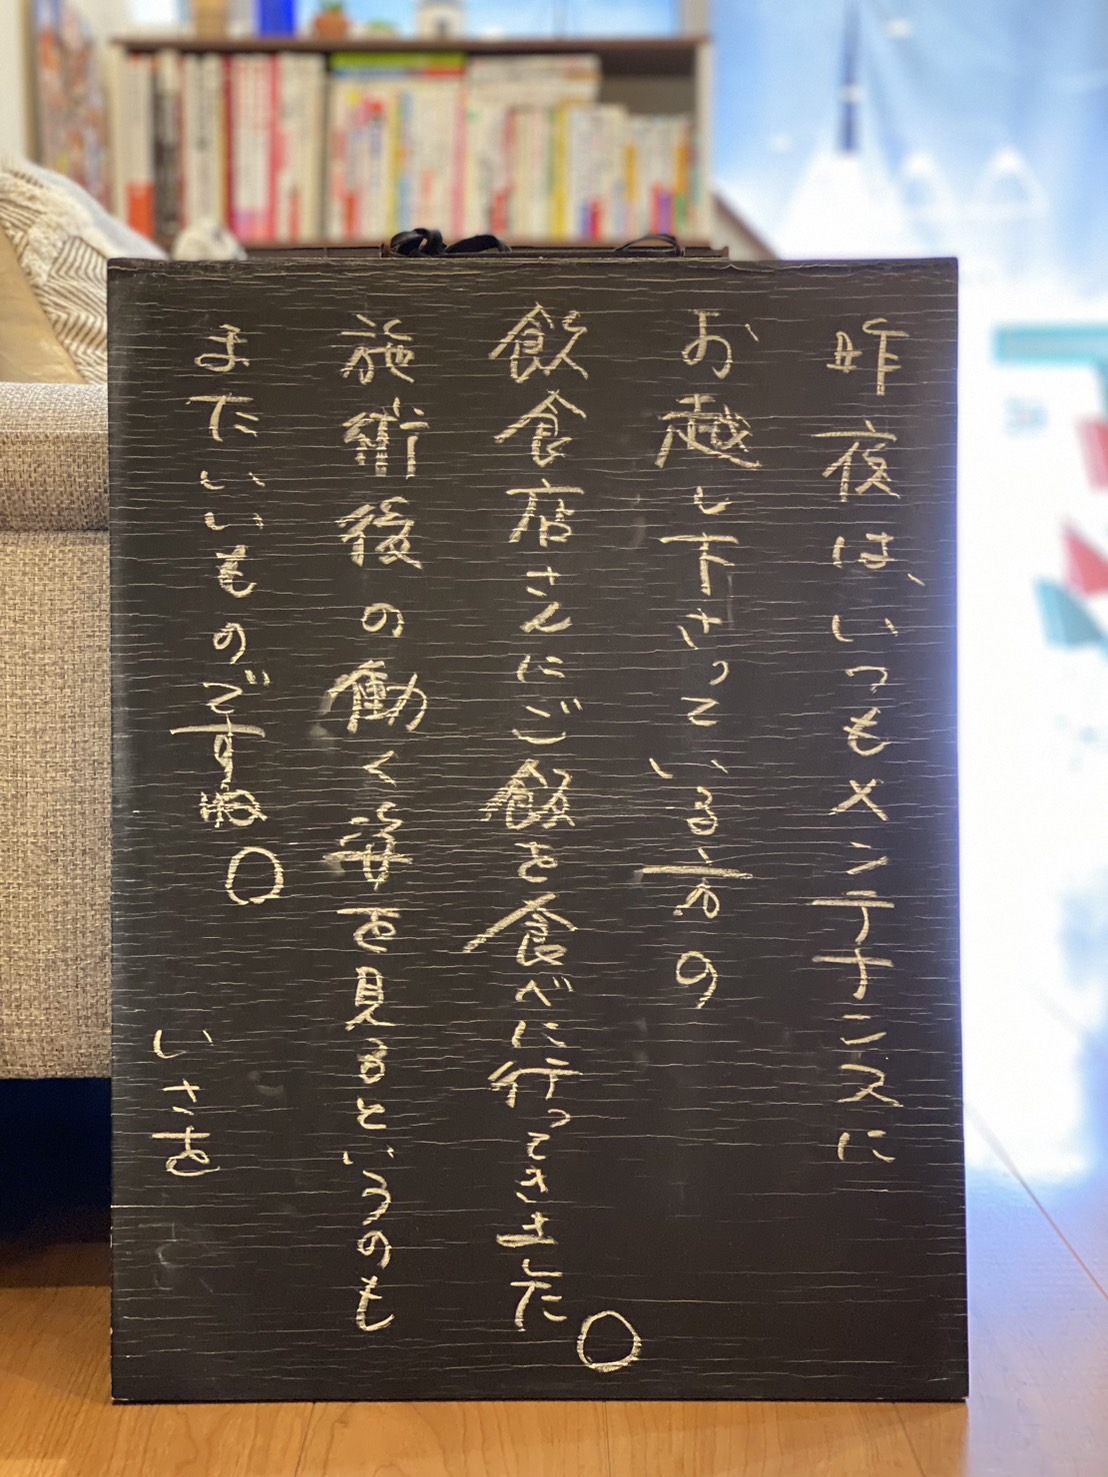 昨夜は、いつもメンテナンスに
お越し下さっている方の
飲食店さんにご飯を食べに行ってきました。
施術後の働く姿を見るというのも
またいいものですね。
いさを